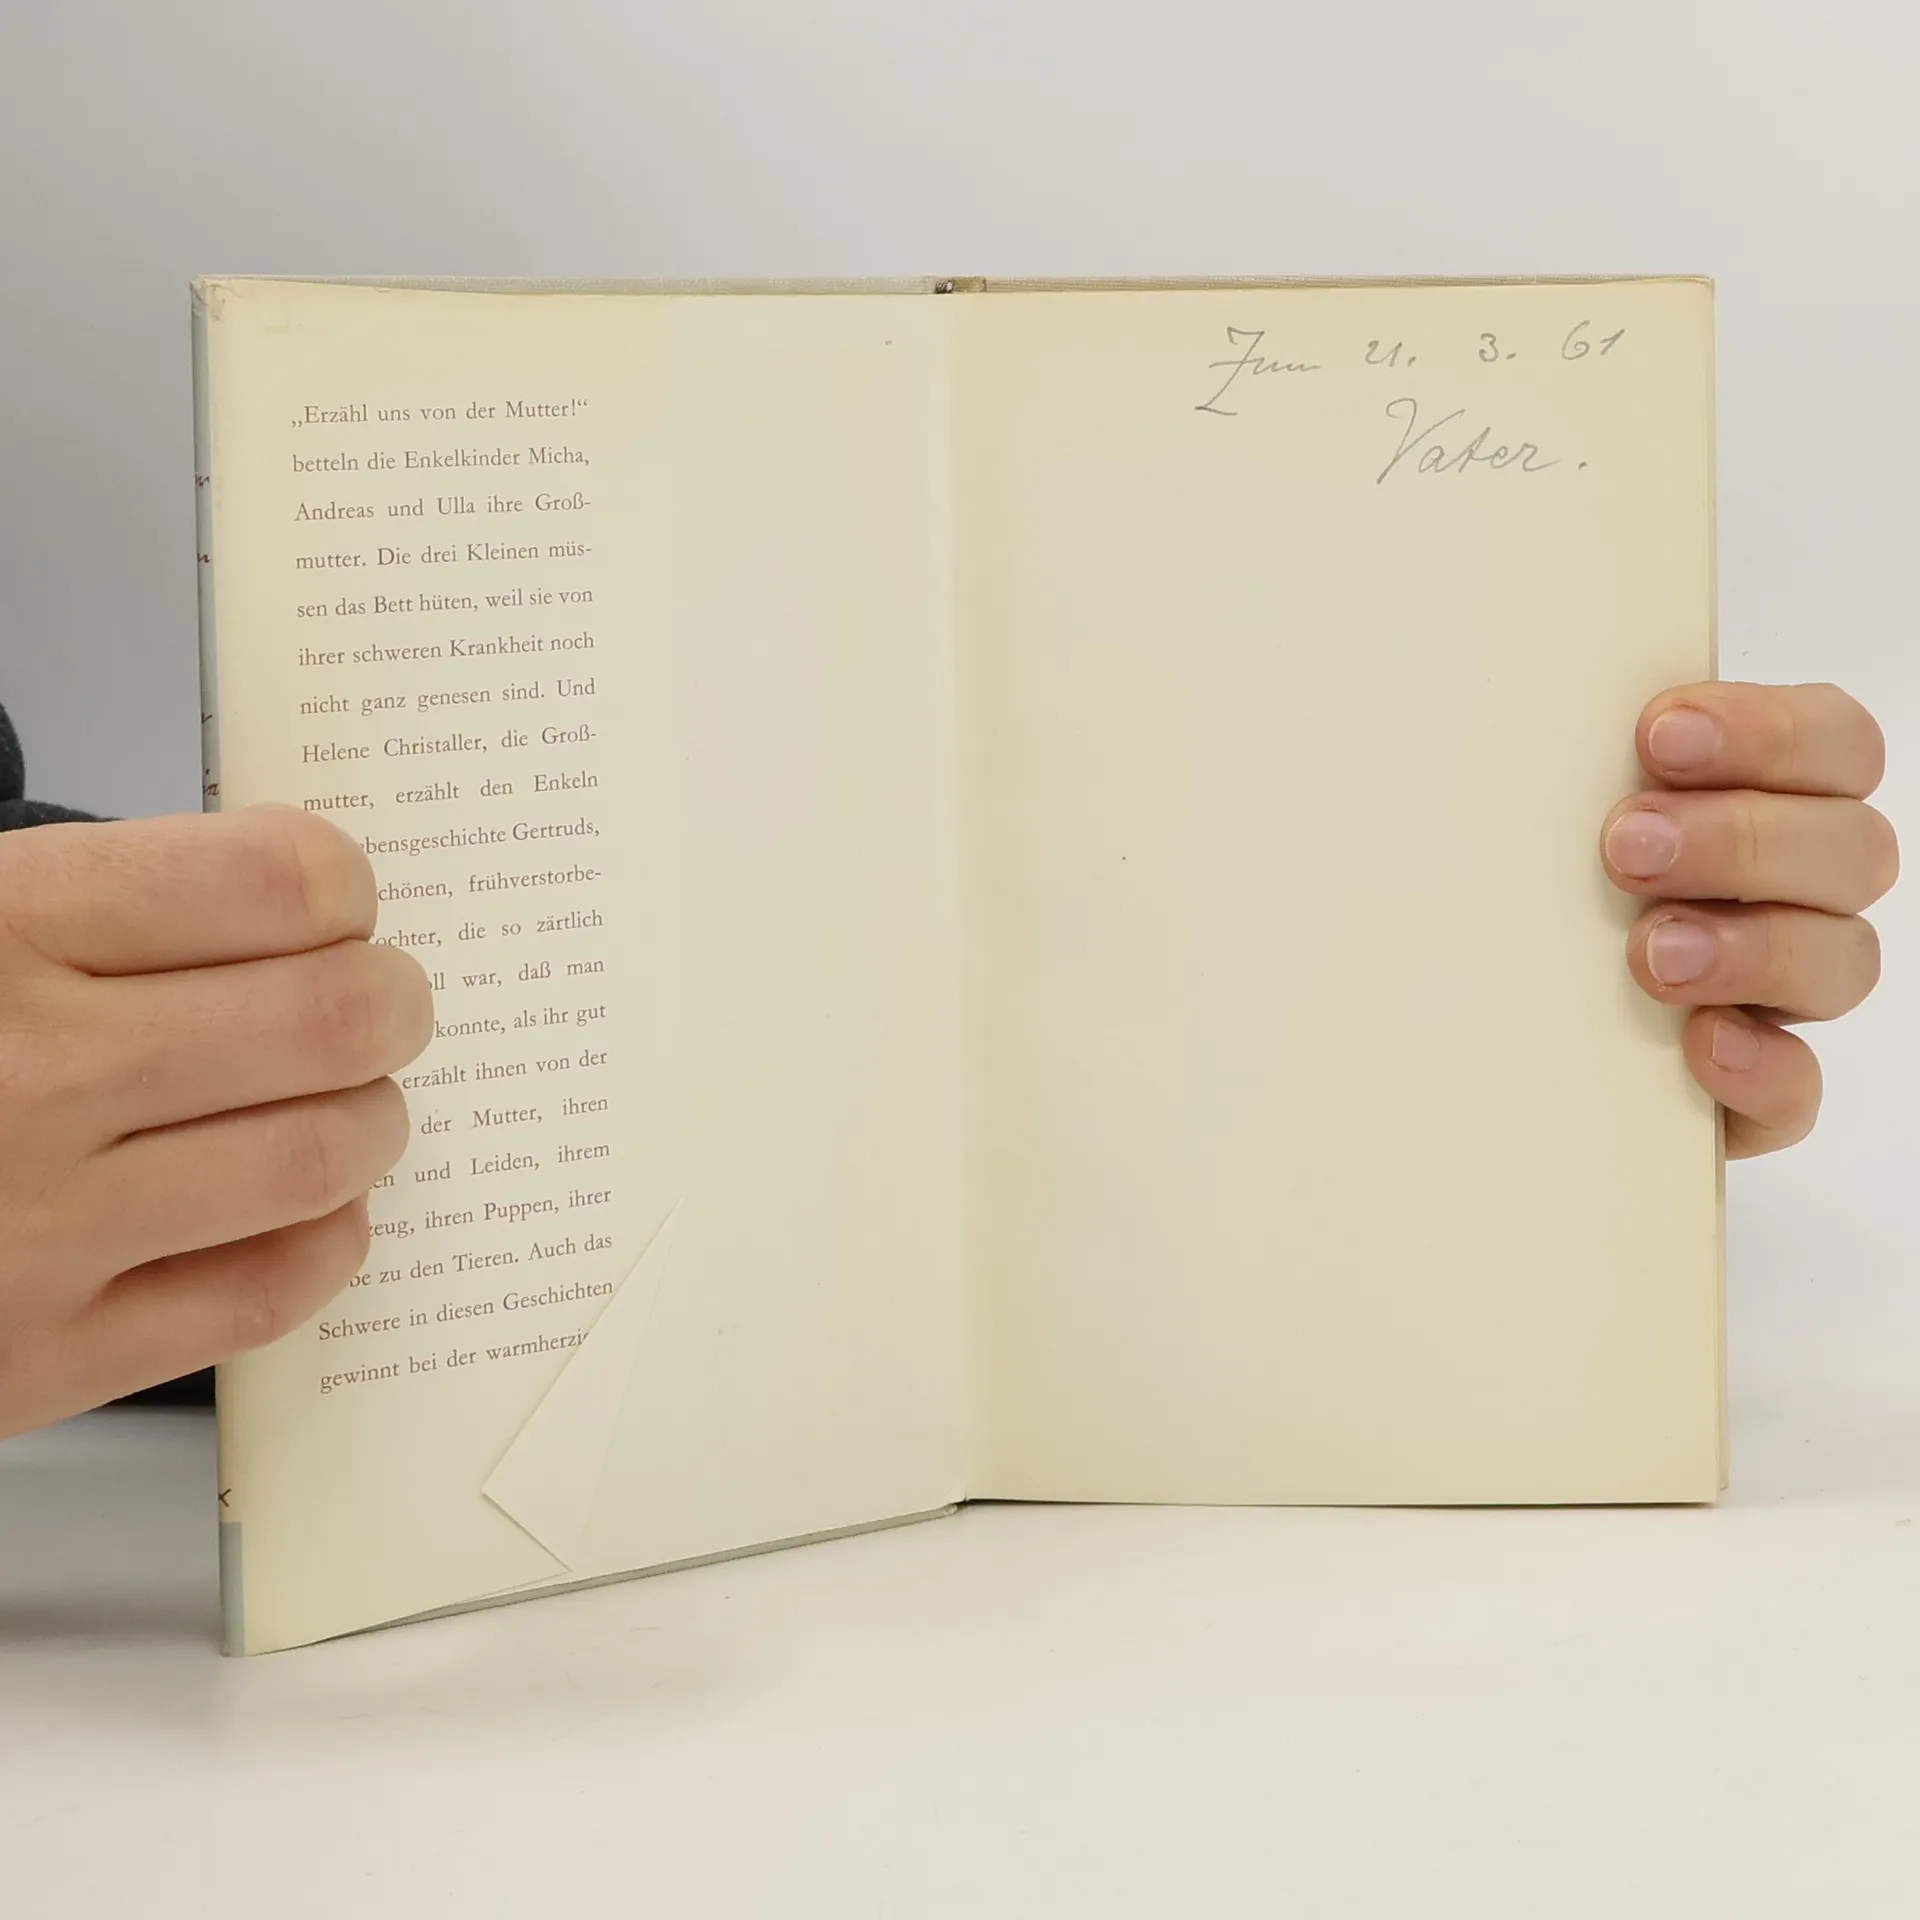 „Erzähl uns von der Mutter!“
betteln die Enkelkinder Micha,
Andreas und Ulla ihre Groß-
mutter. Die drei Kleinen müs-
sen das Bett hüten, weil sie von
ihrer schweren Krankheit noch
nicht ganz genesen sind. Und
Helene Christaller, die Groß-
mutter, erzählt den Enkeln
Gertruds,
frühverstorbe-
die so zärtlich
war, daß man
konnte, als ihr gut
erzählt ihnen von der
der Mutter, ihren
und Leiden, ihrem
ihren Puppen, ihrer
zu den Tieren. Auch das
Schwere in diesen Geschichten
gewinnt bei der
Zum 21. 3. 61
Vater.